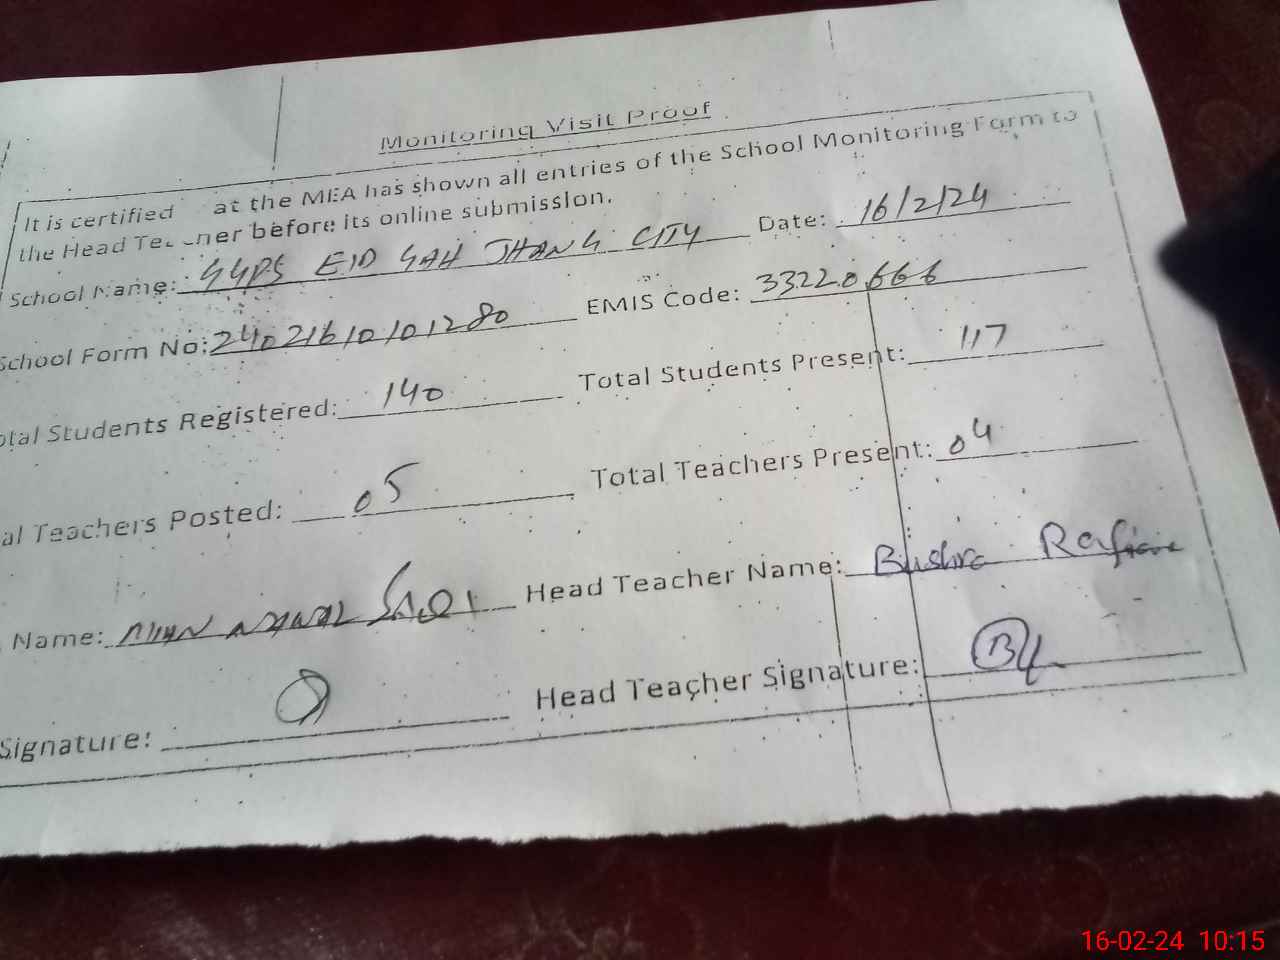 Monitoring Visit Proof
It is certified at the MEA has shown all entries of the School Monitoring Form to
the Head Teacher before its online submission.
School Name: GGPS EID GAH JHANG CITY Date: 16/2/24
School Form No: 24021610101280 EMIS Code: 33220666
otal Students Registered: 140 Total Students Present: 117
al Teachers Posted: 05 Total Teachers Present: 04
Name: Head Teacher Name: Bushra
Signature: Head Teacher Signature:
16-02-24 10:15